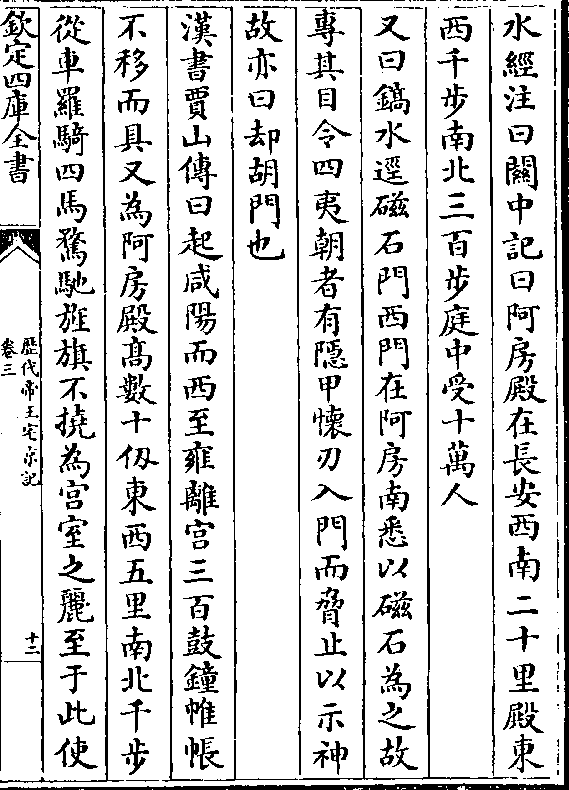 水經注曰關中記曰阿房殿在長安西南二十里殿東
西千步南北三百步庭中受十萬人
又曰鎬水逕磁石門西門在阿房南悉以磁石為之故
專其目令四夷朝者有隱甲懷刃入門而脅止以示神
故亦曰却胡門也
漢書賈山傳曰起咸陽而西至雍離宫三百鼓鐘帷帳
不移而具又為阿房殿髙數十仭東西五里南北千步
從車羅騎四馬騖馳旌旗不撓為宫室之麗至于此使
欽定四庫全書
歷代帝王宅京記
卷三
十二